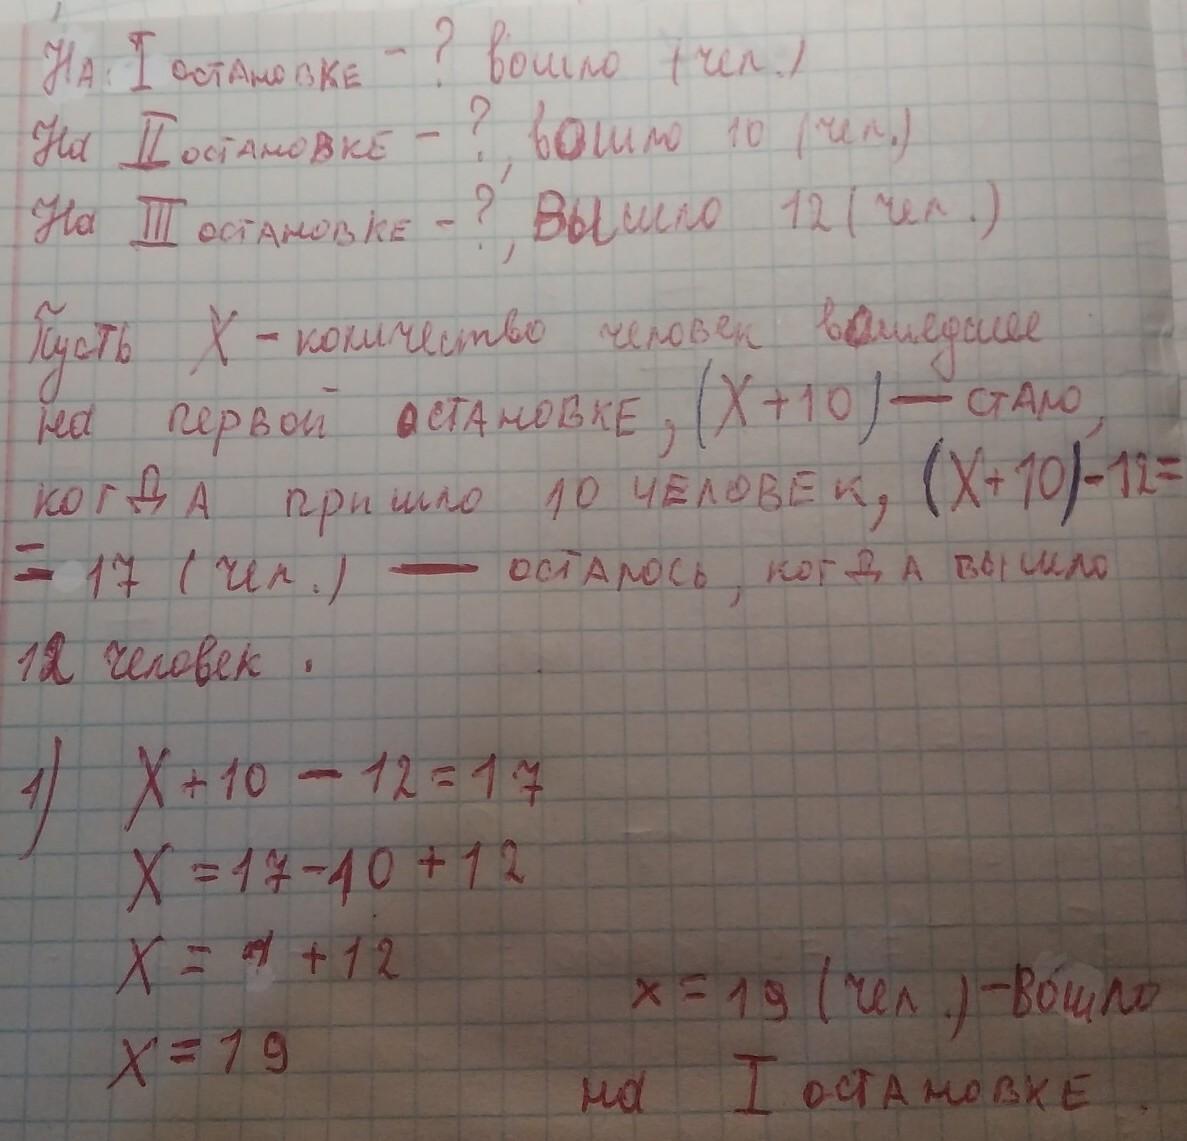 На I остановке - ? вошло (чел.)
На II остановке - ?, вошло 10 (чел.)
На III остановке - ?, вышло 12 (чел.)
Пусть X - количество человек вошедшее
на первой остановке, (X + 10) — стало,
когда пришло 10 человек, (X + 10) - 12 =
= 17 (чел.) — осталось, когда вышло
12 человек.
1) X + 10 - 12 = 17
X = 17 - 10 + 12
X = 7 + 12
x = 19 (чел.) - вошло
X = 19
на I остановке.